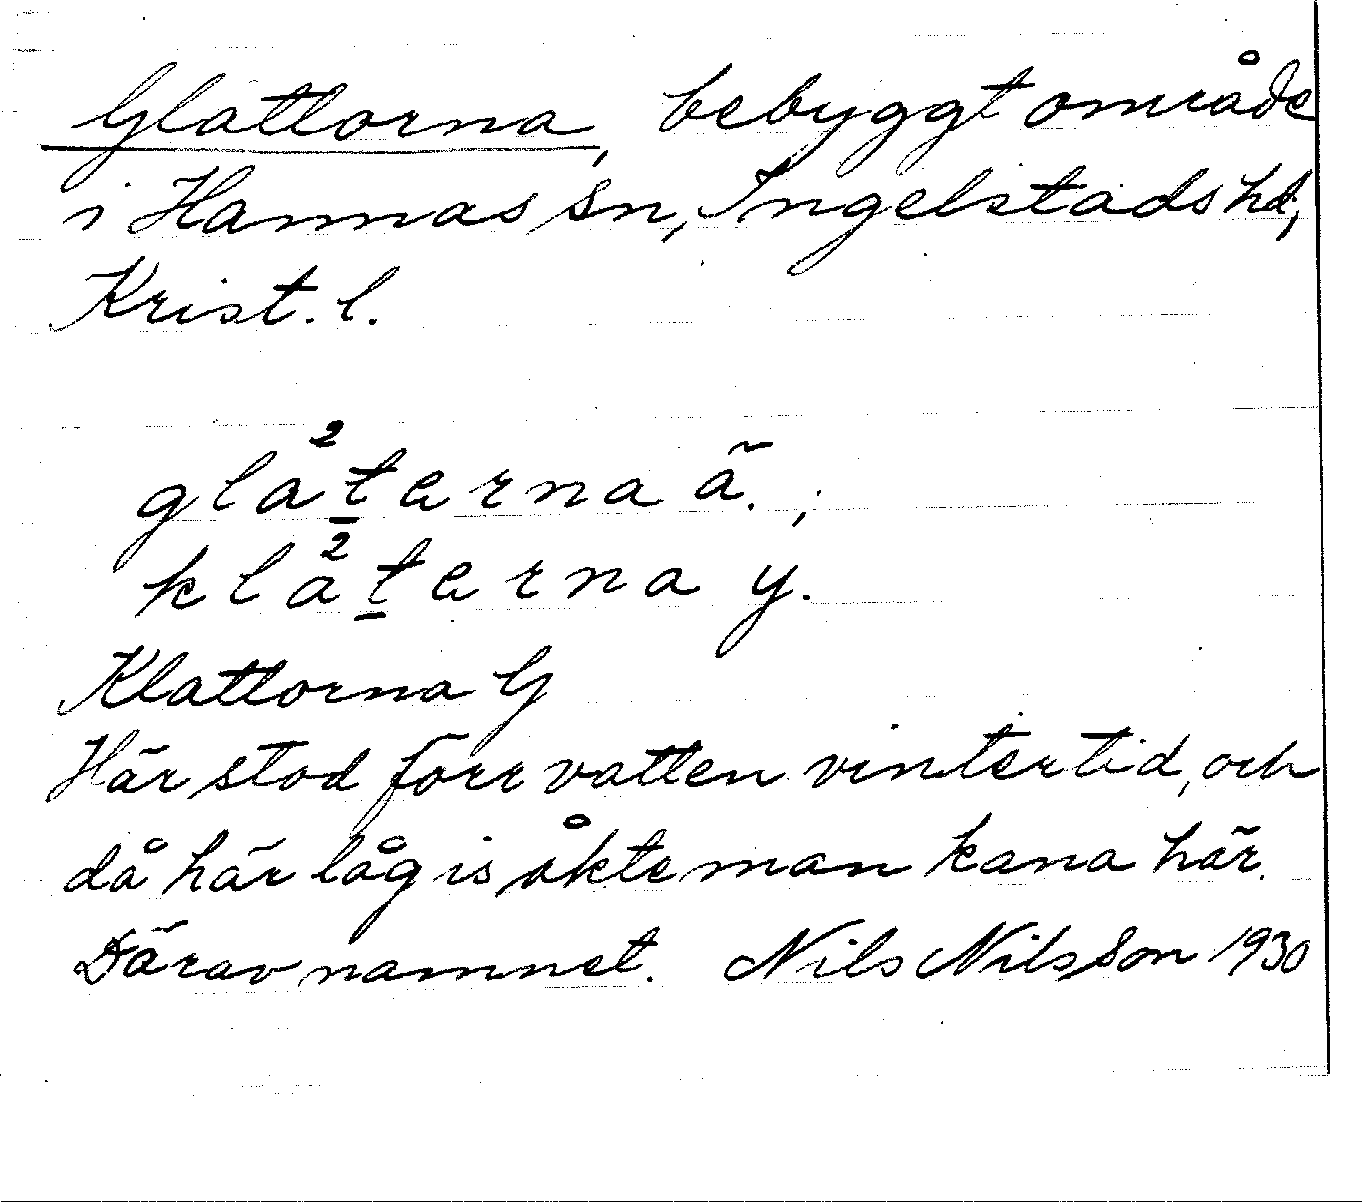 Glattorna, bebyggt område
i Hannas sn, Ingelstads hd,
Krist. l.
gla²t̲erna ä.;
kla²t̲erna y.
Klattorna G
Här stod förr vatten vintertid, och
då här låg is åkte man kana här.
Därav namnet. Nils Nilsson 1930